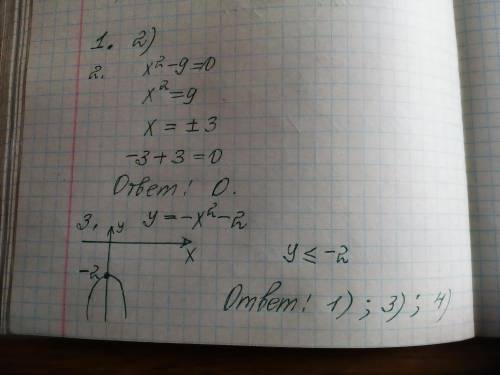 1. 2)
2. x²-9=0
x²=9
x = ±3
-3+3=0
Ответ: 0.
3. y=-x²-2
y
x
-2
y ≤ -2
Ответ: 1); 3); 4)